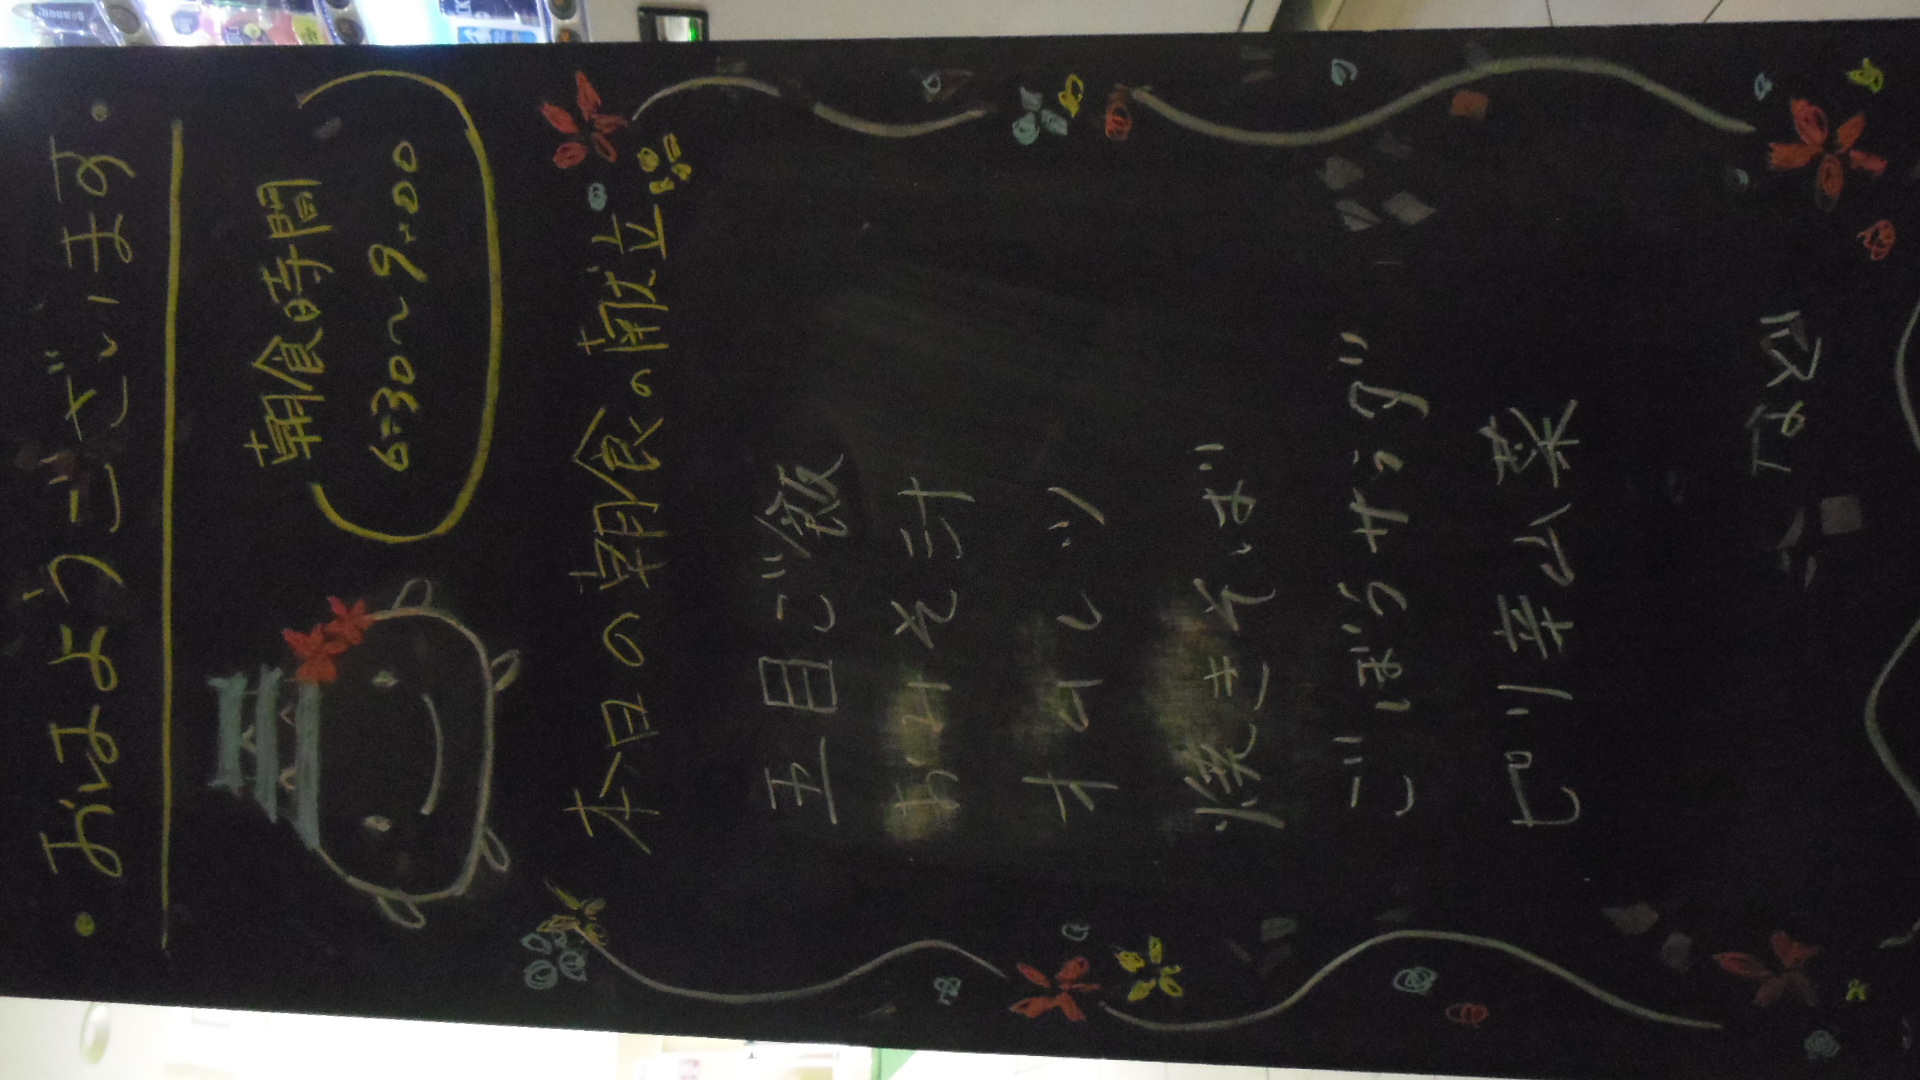 ・おはようございます・
朝食時間
6:30〜9:00
本日の朝食の献立
五目ご飯
おみそ汁
オムレツ
焼きそば
ごぼうサラダ